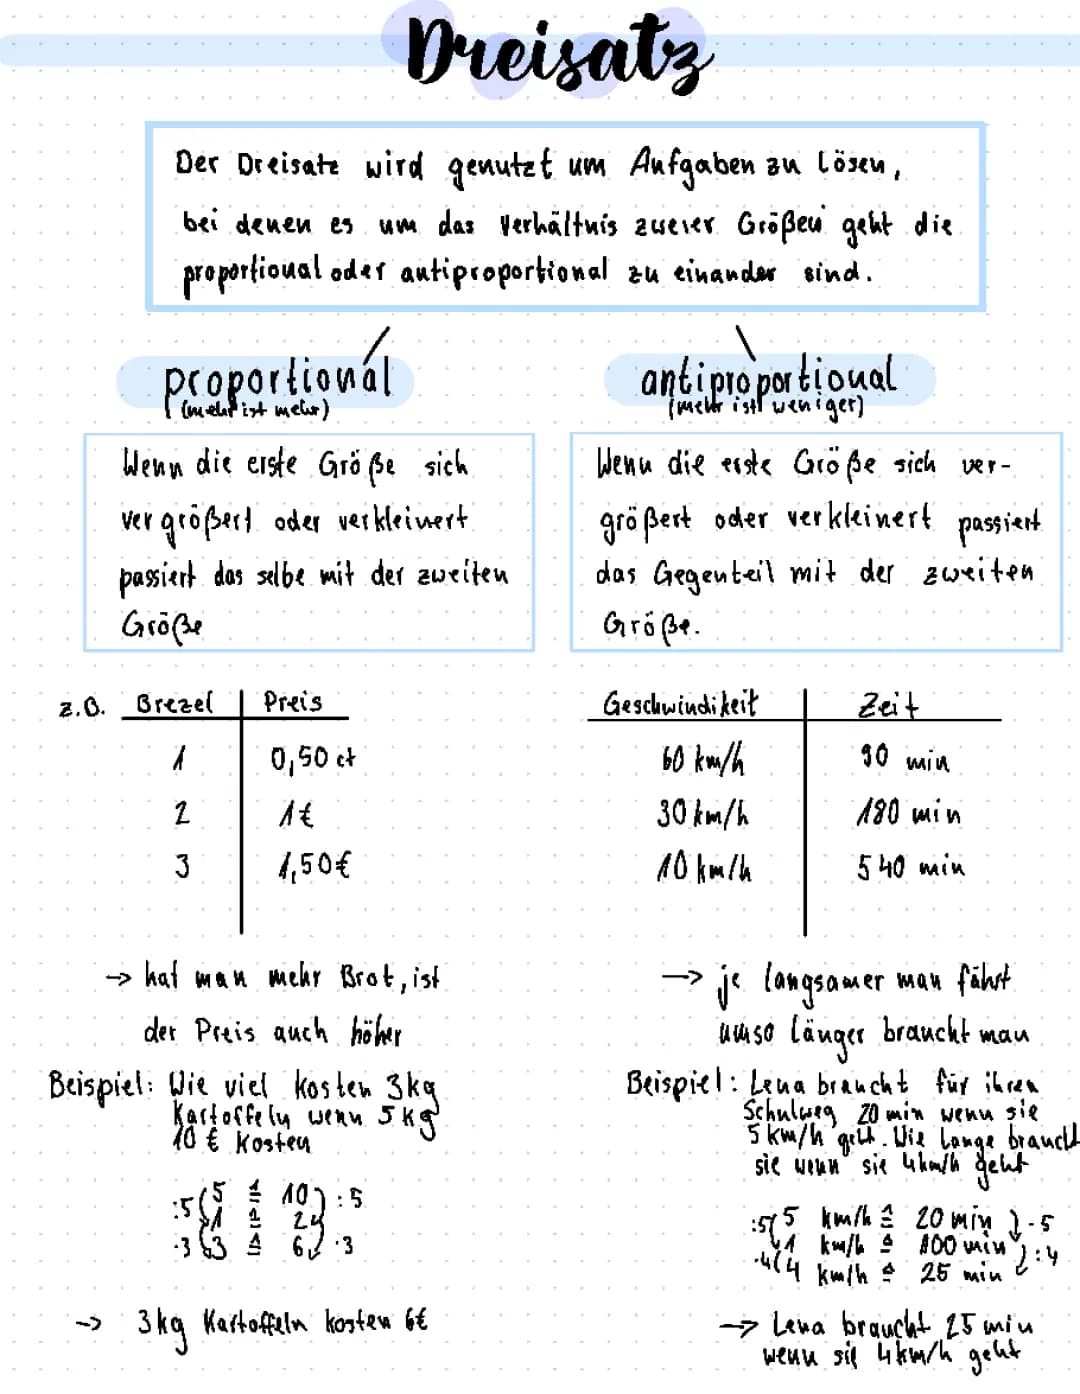 Dreisatz
Der Dreisatz wird genutzt um Aufgaben zu lösen,
bei denen es um das Verhältnis zweier Größen geht die
proportional oder antiproportional zu einander sind.
proportional
(mehr ist mehr)
Wenn die erste Größe sich
vergrößert oder verkleinert
passiert das selbe mit der zweiten
Größe
antiproportional
(mehr ist weniger)
Wenn die erste Größe sich ver-
größert oder verkleinert passiert
das Gegenteil mit der zweiten
Größe.
z.B. Brezel Preis
1 0,50 ct
2 1€
3 1,50€
→ hat man mehr Brot, ist
der Preis auch höher
Beispiel: Wie viel kosten 3kg
Kartoffeln wenn 5kg
10 € kosten
:5 5 ≙ 10 :5
1 ≙ 2
·3 3 ≙ 6 ·3
→ 3kg Kartoffeln kosten 6€
Geschwindikeit Zeit
60 km/h 90 min
30 km/h 180 min
10 km/h 540 min
→ je langsamer man fährt
umso länger braucht man
Beispiel: Lena braucht für ihren
Schulweg 20 min wenn sie
5 km/h geht. Wie lange braucht
sie wenn sie 4km/h geht
:5 5 km/h ≙ 20 min ·5
1 km/h ≙ 100 min
·4 4 km/h ≙ 25 min :4
→ Lena braucht 25 min
wenn sie 4km/h geht